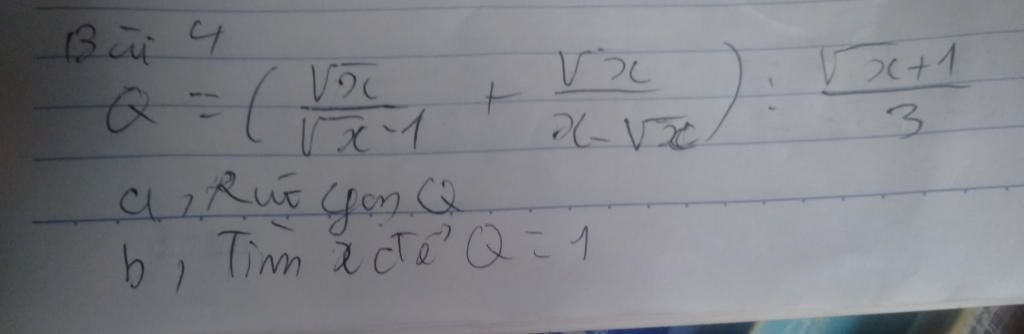 Bài 4
Q = ( √x / √x - 1 + √x / x - √x ) : √x + 1 / 3
a, Rút gọn Q
b, Tìm x để Q = 1